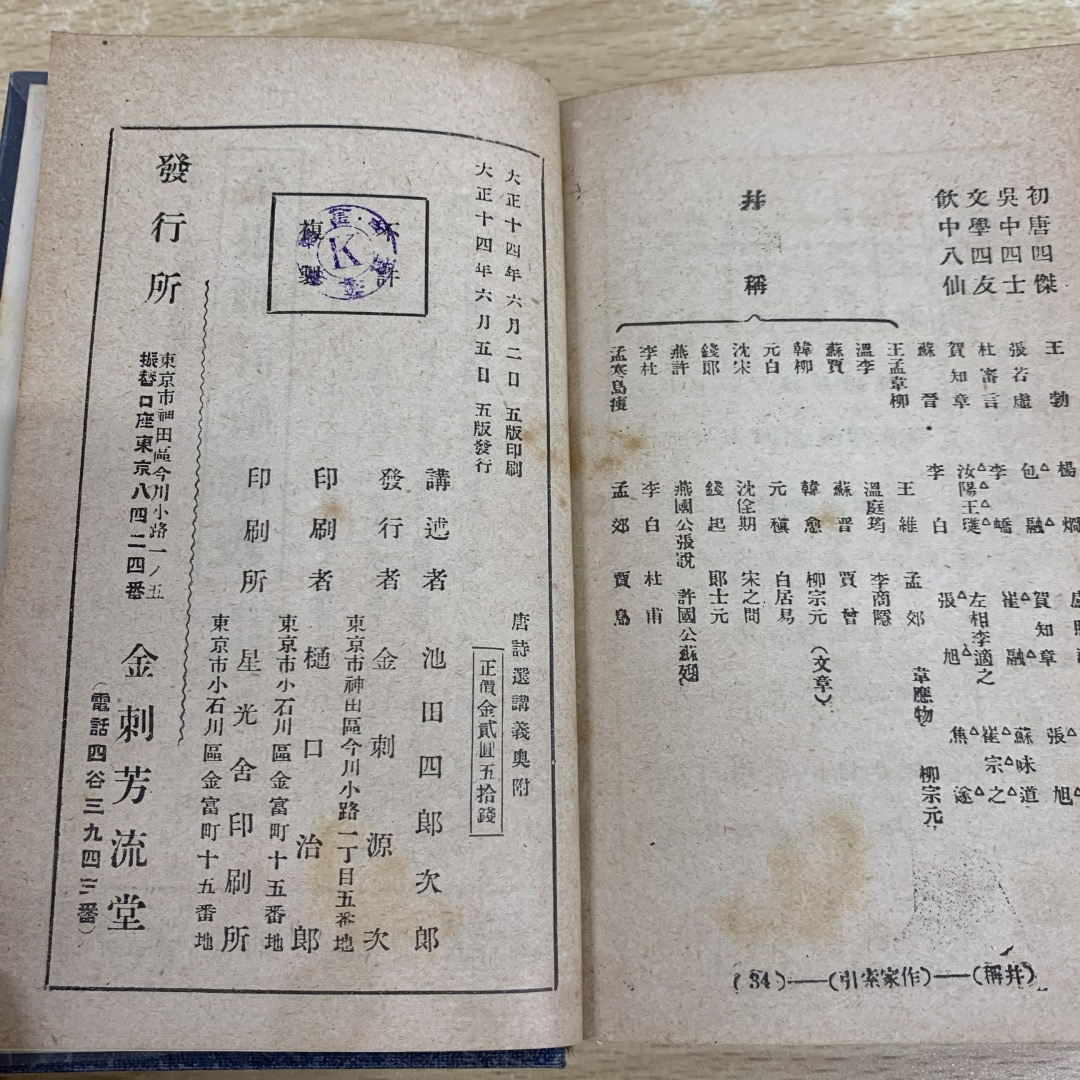 初唐四傑
吳中四士
文學四友
飲中八仙
王勃
楊炯
張若虛
包融
賀知章
張旭
杜審言
李嶠
崔融
蘇味道
賀知章
汝陽王璡
左相李適之
崔宗之
蘇晉
李白
張旭
焦遂
幷稱
王孟韋柳
王維
孟郊
韋應物
柳宗元
溫李
溫庭筠
李商隱
蘇賈
蘇晋
賈曾
韓柳
韓愈
柳宗元
(文章)
元白
元稹
白居易
沈宋
沈佺期
宋之問
錢郎
錢起
郎士元
燕許
燕國公張說
許國公蘇頲
李杜
李白
杜甫
孟寒島瘦
孟郊
賈島
(34)——(引索家作)——(稱幷)
唐詩選講義奥附
正價金貳圓五拾錢
大正十四年六月二日 五版印刷
大正十四年六月五日 五版發行
不許
複製
K
講述者 池田四郎次郎
東京市神田區今川小路一丁目五番地
發行者 金刺源次
東京市小石川區金富町十五番地
印刷者 樋口治郎
東京市小石川區金富町十五番地
印刷所 星光舍印刷所
發行所
東京市神田區今川小路一ノ五
振替口座東京八四二四番
金刺芳流堂
(電話四谷三九四三番)